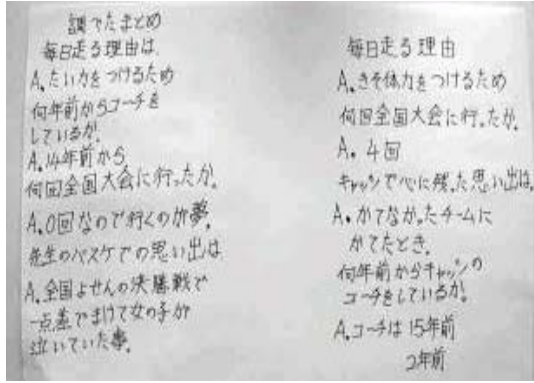 調でたまとめ
毎日走る理由は、
A、たい力をつけるため
何年前からコーチを
しているか、
A、14年前から
何回全国大会に行ったか、
A、0回なので行くのが夢、
先生のバスケでの思い出は
A、全国よせんの決勝戦で
一点差でまけて女の子が
泣いていた事、
毎日走る理由
A、きそ体力をつけるため
何回全国大会に行ったか、
A、4回
キャッツで心に残った思い出は、
A、かてなかったチームに
かてたとき、
何年前からキャッツの
コーチをしているか、
A、コーチは15年前
2年前